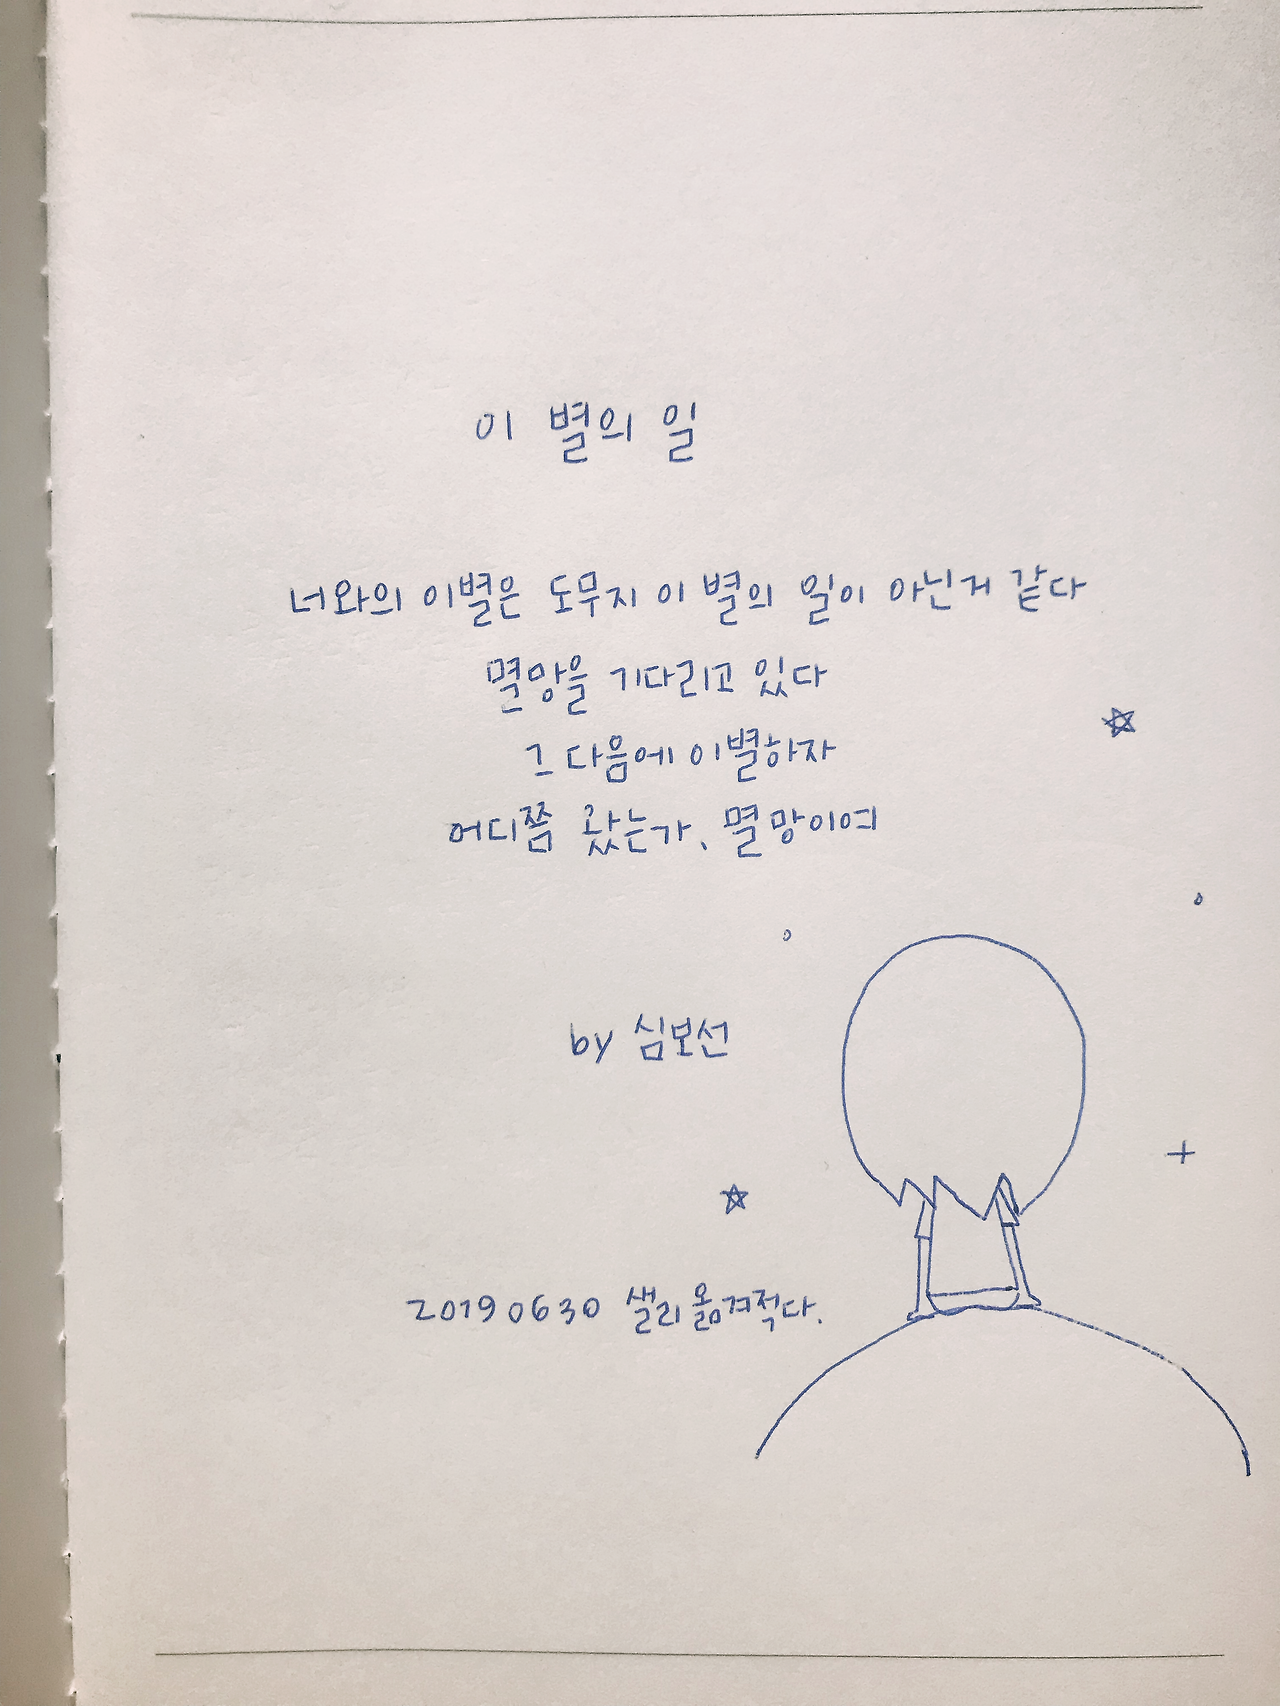 이 별의 일
너와의 이별은 도무지 이 별의 일이 아닌거 같다
멸망을 기다리고 있다
그 다음에 이별하자
어디쯤 왔는가, 멸망이여
by 심보선
20190630 샐리 옮겨적다.